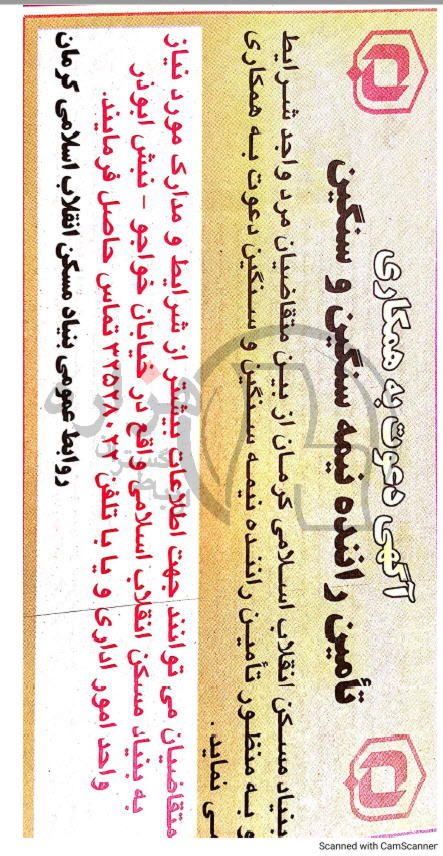 آگهی دعوت به همکاری
تأمین راننده نیمه سنگین و سنگین
بنیاد مسکن انقلاب اسلامی کرمان از بین متقاضیان مرد واجد شرایط
و به منظور تأمین راننده نیمه سنگین و سنگین دعوت به همکاری
می نماید .
متقاضیان می توانند جهت اطلاعات بیشتر از شرایط و مدارک مورد نیاز
به بنیاد مسکن انقلاب اسلامی واقع در خیابان خواجو - نبش ابوذر
واحد امور اداری و یا با تلفن ۳۲۵۲۸۰۲۲ تماس حاصل فرمایند.
روابط عمومی بنیاد مسکن انقلاب اسلامی کرمان
Scanned with CamScanner